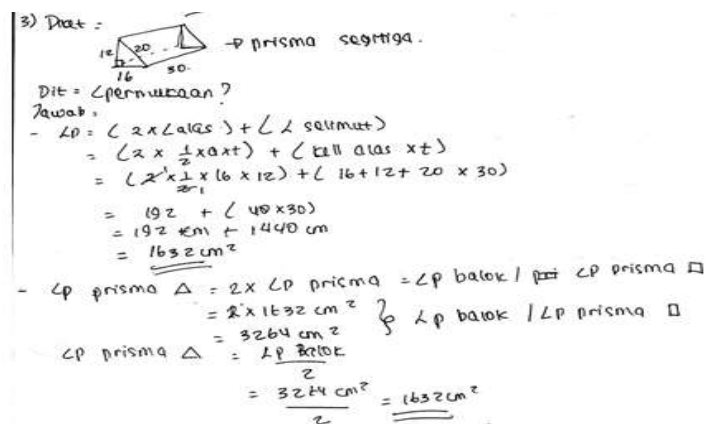 3) Diket :
12 20 16 30. → prisma segitiga.
Dit = Lpermukaan ?
Jawab :
- Lp = ( 2 x Lalas ) + ( L selimut )
= ( 2 x 1/2 x a x t ) + ( kell alas x t )
= ( 2 x 1/2 x 16 x 12 ) + ( 16 + 12 + 20 x 30 )
= 192 + ( 48 x 30 )
= 192 cm + 1440 cm
= 1632 cm²
- Lp prisma △ = 2 x Lp prisma = Lp balok / Lp prisma □
= 2 x 1632 cm² } Lp balok / Lp prisma □
= 3264 cm²
Lp prisma △ = Lp Balok / 2
= 3264 cm² / 2 = 1632 cm²